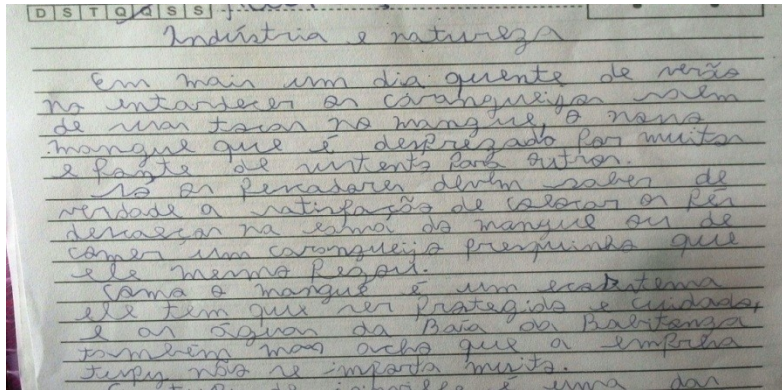 D S T Q Q S S
Indústria e natureza
Em mais um dia quente de verão
no entardecer os caranguejos saem
de suas tocas no mangue, o nosso
mangue que é desprezado por muitos
e fonte de sustento para outros.
Só os pescadores devem saber de
verdade a satisfação de colocar os pés
descalços na lama do mangue ou de
comer um caranguejo fresquinho que
ele mesmo pegou.
Como o mangue é um ecossistema
ele tem que ser protegido e cuidado,
e as águas da Baía da Babitonga
também mas acho que a empresa
tupy não se importa muito.
é uma das